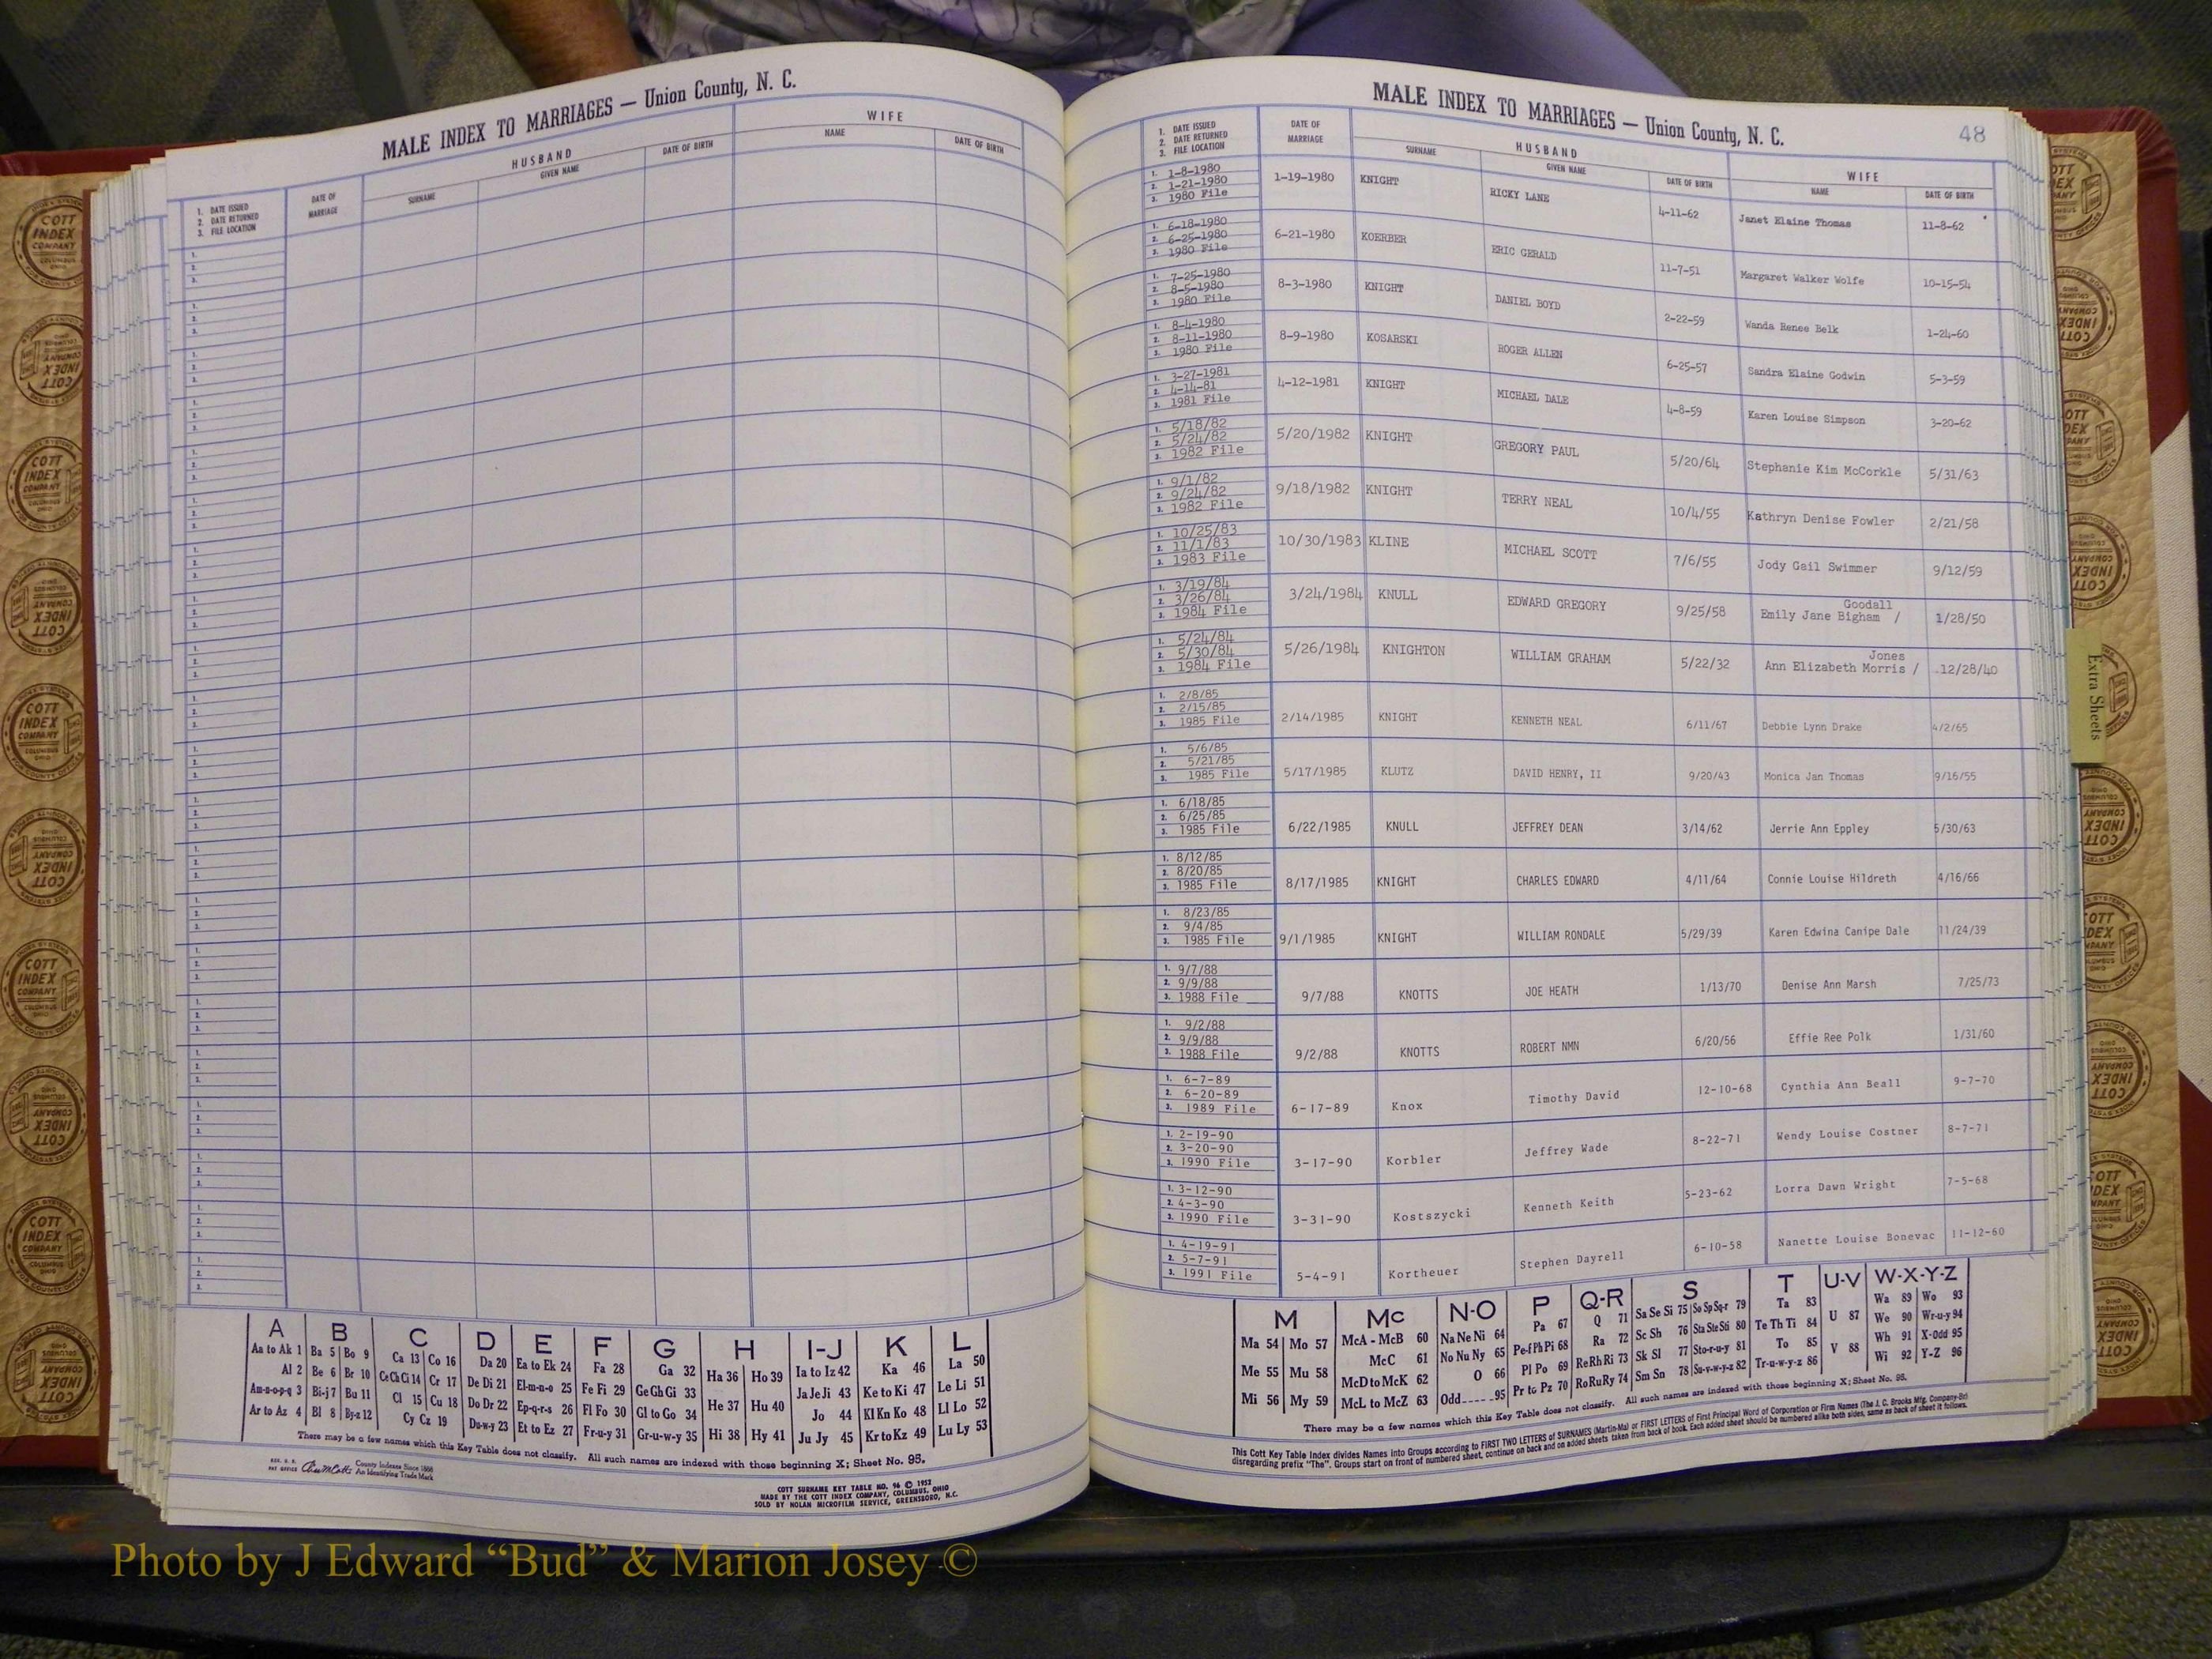 MALE INDEX TO MARRIAGES — Union County, N. C.
1. DATE ISSUED
2. DATE RETURNED
3. FILE LOCATION
DATE OF MARRIAGE
HUSBAND
SURNAME GIVEN NAME DATE OF BIRTH
WIFE
NAME DATE OF BIRTH
A B C D E F G H I-J K L
Aa to Ak 1 Ba 5 Bo 9 Ca 13 Co 16 Da 20 Ea to Ek 24 Fa 28 Ga 32 Ha 36 Ho 39 Ia to Iz 42 Ka 46 La 50
Al 2 Be 6 Br 10 Ce Ch Ci 14 Cr 17 De Di 21 El-m-n-o 25 Fe Fi 29 Ge Gh Gi 33 He 37 Hu 40 Ja Je Ji 43 Ke to Ki 47 Le Li 51
Am-n-o-p-q 3 Bi-j 7 Bu 11 Cl 15 Cu 18 Do Dr 22 Ep-q-r-s 26 Fl Fo 30 Gl to Go 34 Hi 38 Hy 41 Jo 44 Kl Kn Ko 48 Ll Lo 52
Ar to Az 4 Bl 8 By-z 12 Cy Cz 19 Du-w-y 23 Et to Ez 27 Fr-u-y 31 Gr-u-w-y 35 Ju Jy 45 Kr to Kz 49 Lu Ly 53
There may be a few names which this Key Table does not classify. All such names are indexed with those beginning X; Sheet No. 95.
County Indexes Since 1888
An Identifying Trade Mark
COTT SURNAME KEY TABLE NO. 96 © 1952
MADE BY THE COTT INDEX COMPANY, COLUMBUS, OHIO
SOLD BY NOLAN MICROFILM SERVICE, GREENSBORO, N.C.
MALE INDEX TO MARRIAGES — Union County, N. C.
48
1. DATE ISSUED
2. DATE RETURNED
3. FILE LOCATION
DATE OF MARRIAGE
HUSBAND
SURNAME GIVEN NAME DATE OF BIRTH
WIFE
NAME DATE OF BIRTH
1. 1-8-1980
2. 1-21-1980
3. 1980 File
1-19-1980 KNIGHT RICKY LANE 4-11-62 Janet Elaine Thomas 11-8-62
1. 6-18-1980
2. 6-25-1980
3. 1980 File
6-21-1980 KOERBER ERIC GERALD 11-7-51 Margaret Walker Wolfe 10-15-54
1. 7-25-1980
2. 8-5-1980
3. 1980 File
8-3-1980 KNIGHT DANIEL BOYD 2-22-59 Wanda Renee Belk 1-24-60
1. 8-4-1980
2. 8-11-1980
3. 1980 File
8-9-1980 KOSARSKI ROGER ALLEN 6-25-57 Sandra Elaine Godwin 5-3-59
1. 3-27-1981
2. 4-14-81
3. 1981 File
4-12-1981 KNIGHT MICHAEL DALE 4-8-59 Karen Louise Simpson 3-20-62
1. 5/18/82
2. 5/24/82
3. 1982 File
5/20/1982 KNIGHT GREGORY PAUL 5/20/64 Stephanie Kim McCorkle 5/31/63
1. 9/1/82
2. 9/24/82
3. 1982 File
9/18/1982 KNIGHT TERRY NEAL 10/4/55 Kathryn Denise Fowler 2/21/58
1. 10/25/83
2. 11/1/83
3. 1983 File
10/30/1983 KLINE MICHAEL SCOTT 7/6/55 Jody Gail Swimmer 9/12/59
1. 3/19/84
2. 3/26/84
3. 1984 File
3/24/1984 KNULL EDWARD GREGORY 9/25/58 Emily Jane Bigham / Goodall 1/28/50
1. 5/24/84
2. 5/30/84
3. 1984 File
5/26/1984 KNIGHTON WILLIAM GRAHAM 5/22/32 Ann Elizabeth Morris / Jones 12/28/40
1. 2/8/85
2. 2/15/85
3. 1985 File
2/14/1985 KNIGHT KENNETH NEAL 6/11/67 Debbie Lynn Drake 4/2/65
1. 5/6/85
2. 5/21/85
3. 1985 File
5/17/1985 KLUTZ DAVID HENRY, II 9/20/43 Monica Jan Thomas 9/16/55
1. 6/18/85
2. 6/25/85
3. 1985 File
6/22/1985 KNULL JEFFREY DEAN 3/14/62 Jerrie Ann Eppley 5/30/63
1. 8/12/85
2. 8/20/85
3. 1985 File
8/17/1985 KNIGHT CHARLES EDWARD 4/11/64 Connie Louise Hildreth 4/16/66
1. 8/23/85
2. 9/4/85
3. 1985 File
9/1/1985 KNIGHT WILLIAM RONDALE 5/29/39 Karen Edwina Canipe Dale 11/24/39
1. 9/7/88
2. 9/9/88
3. 1988 File
9/7/88 KNOTTS JOE HEATH 1/13/70 Denise Ann Marsh 7/25/73
1. 9/2/88
2. 9/9/88
3. 1988 File
9/2/88 KNOTTS ROBERT NMN 6/20/56 Effie Ree Polk 1/31/60
1. 6-7-89
2. 6-20-89
3. 1989 File
6-17-89 Knox Timothy David 12-10-68 Cynthia Ann Beall 9-7-70
1. 2-19-90
2. 3-20-90
3. 1990 File
3-17-90 Korbler Jeffrey Wade 8-22-71 Wendy Louise Costner 8-7-71
1. 3-12-90
2. 4-3-90
3. 1990 File
3-31-90 Kostszycki Kenneth Keith 5-23-62 Lorra Dawn Wright 7-5-68
1. 4-19-91
2. 5-7-91
3. 1991 File
5-4-91 Kortheuer Stephen Dayrell 6-10-58 Nanette Louise Bonevac 11-12-60
M Mc N-O P Q-R S T U-V W-X-Y-Z
Ma 54 Mo 57 McA - McB 60 Na Ne Ni 64 Pa 67 Q 71 Sa Se Si 75 So Sp Sq-r 79 Ta 83 U 87 Wa 89 Wo 93
Me 55 Mu 58 McC 61 No Nu Ny 65 Pe-f Ph Pi 68 Ra 72 Sc Sh 76 Sta Ste Sti 80 Te Th Ti 84 V 88 We 90 Wr-u-y 94
McD to McK 62 O 66 Pl Po 69 Re Rh Ri 73 Sk Sl 77 Sto-r-u-y 81 To 85 Wh 91 X-Odd 95
Mi 56 My 59 McL to McZ 63 Odd 95 Pr to Pz 70 Ro Ru Ry 74 Sm Sn 78 Su-v-w-y-z 82 Tr-u-w-y-z 86 Wi 92 Y-Z 96
There may be a few names which this Key Table does not classify. All such names are indexed with those beginning X; Sheet No. 95.
This Cott Key Table Index divides Names into Groups according to FIRST TWO LETTERS of SURNAMES (Martin-Ma) or FIRST LETTERS of First Principal Word of Corporation or Firm Names (The J. C. Brooks Mfg. Company-Br)
disregarding prefix "The". Groups start on front of numbered sheet, continue on back and on added sheets taken from back of book. Each added sheet should be numbered alike both sides, same as back of sheet it follows.
Extra Sheets
COTT INDEX COMPANY
COLUMBUS OHIO
Photo by J Edward “Bud” & Marion Josey ©